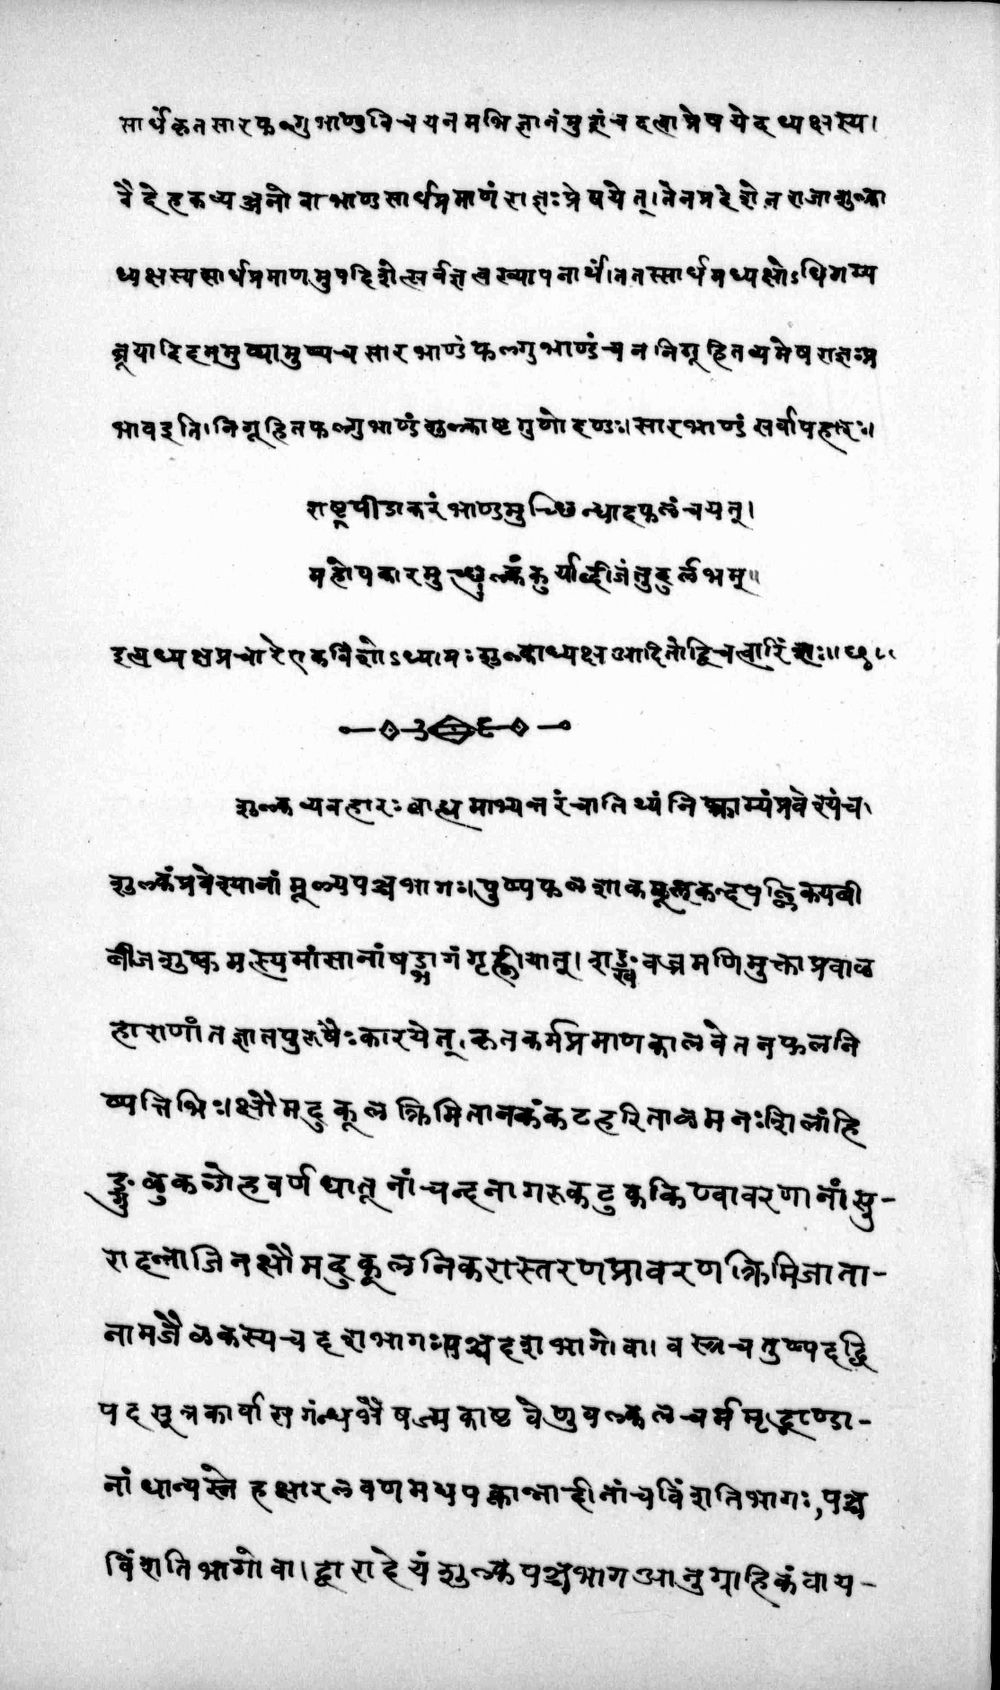 सार्थे कृतसारफल्गुभाण्डविचयनमभिज्ञानं मुद्रां च दत्वा प्रेषयेदध्यक्षस्य।
वैदेहकव्यञ्जनो वा भाण्डसार्थप्रमाणं राज्ञः प्रेषयेत्। तेन प्रदेशेन राजा शुल्का
ध्यक्षस्य सार्थप्रमाणमुपदिशेत्सर्वज्ञत्वख्यापनार्थं। ततस्सार्थमध्यक्षोऽधिगम्य
ब्रूयादिदममुष्यामुष्य च सारभाण्डं फल्गुभाण्डं च न निगूहितव्यमेष राज्ञः प्र
भाव इति। निगूहितफल्गुभाण्डं शुल्काष्टगुणो दण्डः। सारभाण्डं सर्वापहारः।
राष्ट्रपीडाकरं भाण्डमुच्छिन्द्यादफलं च यत्।
महोपकारमुच्छुल्कं कुर्याद्बीजं तु दुर्लभम्॥
इत्यध्यक्षप्रचारे एकविंशोऽध्यायः शुल्काध्यक्ष आदितो द्विचत्वारिंशः॥
शुल्कव्यवहारः बाह्यमाभ्यन्तरं चातिथ्यं निष्क्राम्यं प्रवेश्यं च।
शुल्कं प्रवेश्यानां मूल्यपञ्चभागः। पुष्पफलशाकमूलकन्दपल्लिक्यबी
बीजशुष्कमत्स्यमांसानां षड्भागं गृह्णीयात्। शङ्खवज्रमणिमुक्ताप्रवाळ
हाराणां तज्ञातपुरुषैः कारयेत्, कृतकर्मप्रमाणकालवेतनफलनि
ष्पत्तिभिः। क्षौमदुकूलक्रिमितानकंकटहरिताळमनःशिलाहि
ङ्गुळुकलोहवर्णधातूनां चन्दनागरुकटुककिण्वावरणानां सु-
रादन्ताजिनक्षौमदुकूलनिकरास्तरणप्रावरणक्रिमिजाता-
नामजैळकस्य च दशभागः पञ्चदशभागो वा। वस्त्रचतुष्पदद्वि
पदसूत्रकार्पासगन्धभैषज्यकाष्ठवेणुवल्कलचर्ममृद्भाण्डा-
नां धान्यस्नेहक्षारलवणमद्यपक्वान्नादीनां च विंशतिभागः, पञ्च
विंशतिभागो वा। द्वारादेयं शुल्कपञ्चभाग आनुग्राहिकं वा य-